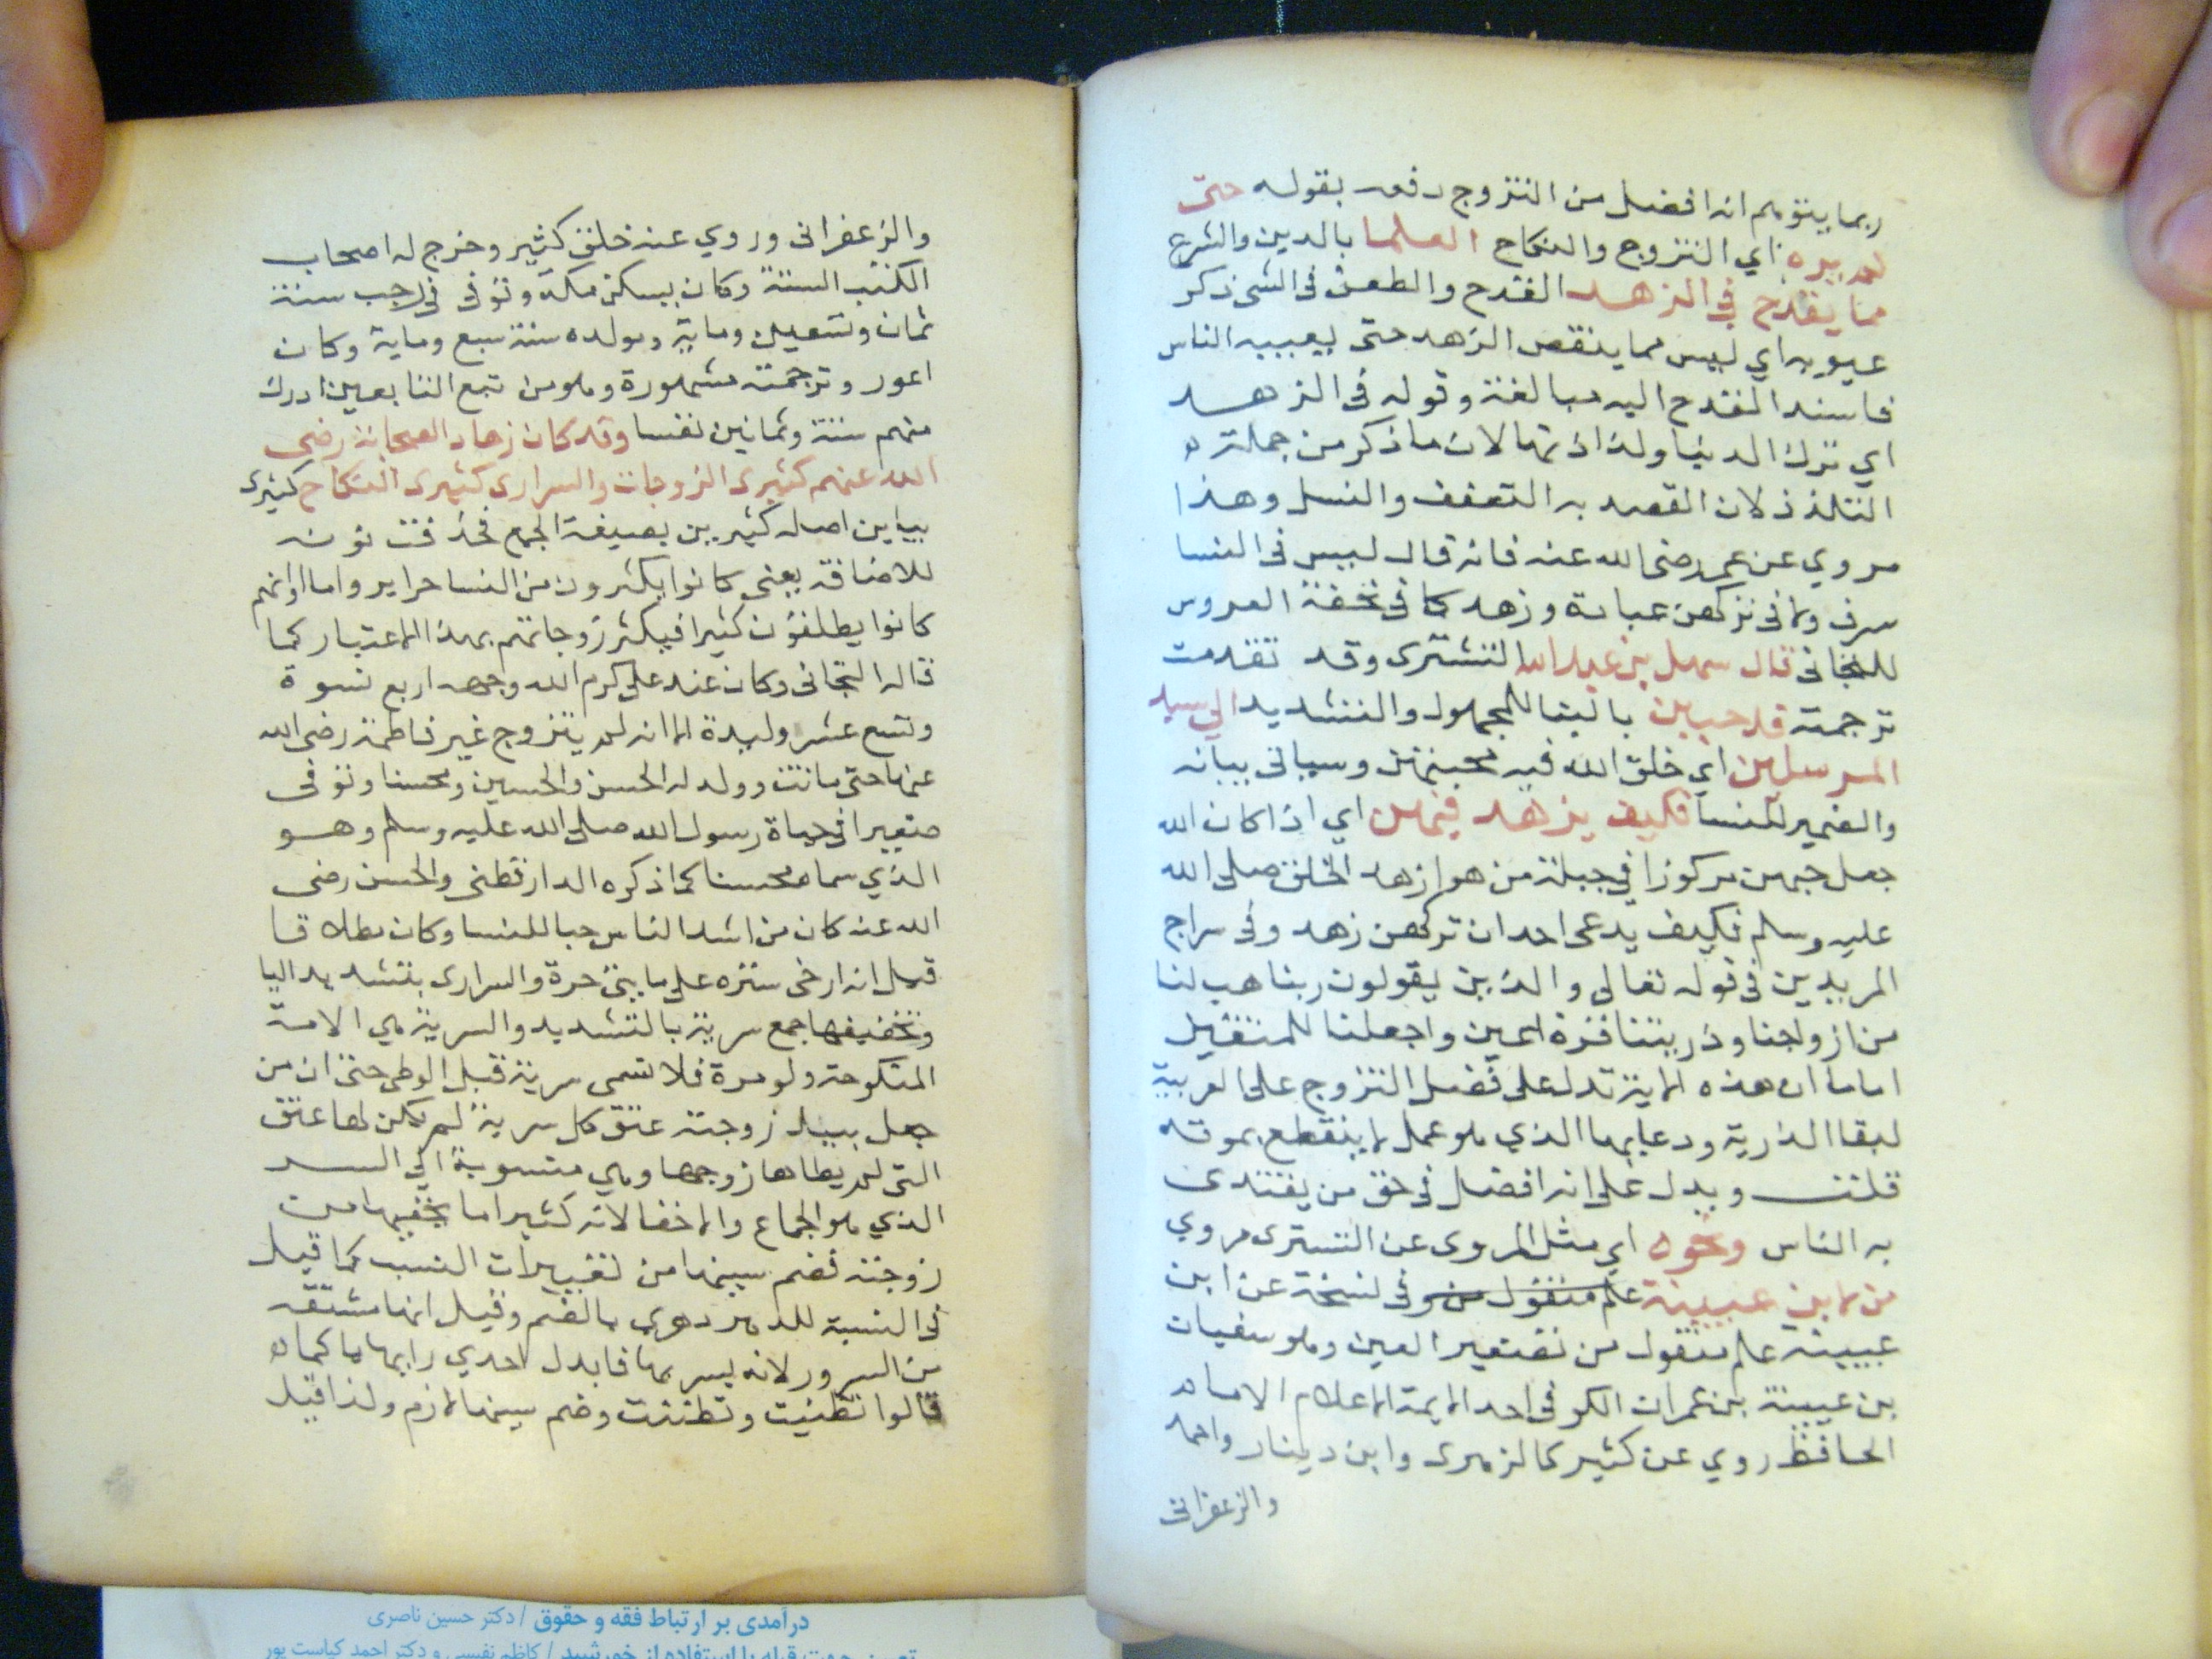 ربما يتوهم انه افضل من التزوج دفعه بقوله حتى
لم يره اي التزوج والنكاح العلما بالدين والشرع
مما يقدح في الزهد القدح والطعن فى الشى ذكر
عيوبه اي ليس مما ينقص الزهد حتى يعيبه الناس
فاسند القدح اليه مبالغة وقوله فى الزهد
اي ترك الدنيا ولذاذتها لان ما ذكر من جملته
التلذذ لان القصد به التعفف والنسل وهذا
مروي عن عمر رضى الله عنه فانه قال ليس فى النسا
سرف ولا فى تركهن عبادة وزهد كما فى تحفة العروس
للتجانى قال سهل بن عبد الله التشترى وقد تقدمت
ترجمته قد حببن بالبنا للمجهول والتشديد الى سيد
المرسلين اي خلق الله فيه محبتهن وسياتى بيانه
والضمير للنسا فكيف يزهد فيهن اي اذا كان الله
جعل حبهن مركوزا في جبلة من هو ازهد الخلق صلى الله
عليه وسلم فكيف يدعى احد ان تركهن زهد وفى سراج
المريدين فى قوله تعالى والذين يقولون ربنا هب لنا
من ازواجنا وذريتنا قرة اعين واجعلنا للمتقين
اماما ان هذه الاية تدل على فضل التزوج على العربية
لبقا الذرية ودعايها الذي هو عمل لا ينقطع بموته
قلت ويدل على انه افضل فى حق من يقتدى
به الناس ونحوه اي مثل المروى عن التسترى مروي
من لابن عيينة علم منقول من وفى نسخة عن ابن
عيينة علم منقول من تصغير العين وهو سفيان
بن عيينة بن عمران الكوفى احد الايمة الاعلام الامام
الحافظ روي عن كثير كالزهرى وابن دينار واحمد
والزعفرانى
والزعفرانى وروي عنه خلق كثير وخرج له اصحاب
الكتب الستة وكان يسكن مكة وتوفى فى رجب سنة
ثمان وتسعين وماية ومولده سنة سبع وماية وكان
اعور وترجمته مشهورة وهو من تبع التابعين ادرك
منهم ستة وثمانين نفسا وقد كان زهاد الصحابة رضى
الله عنهم كثيرى الزوجات والسرارى كثيرى النكاح كثيرى
بياين اصله كثيرين بصيغة الجمع فحذفت نونه
للاضافة يعنى كانوا يكثرون من النسا حراير واما او انهم
كانوا يطلقون كثيرا فيكثر زوجاتهم بهذا الاعتبار كما
قاله التجانى وكان عند على كرم الله وجهه اربع نسوة
وتسع عشر وليدة الا انه لم يتزوج غير فاطمة رضى الله
عنها حتى ماتت وولد له الحسن والحسين ومحسنا وتوفى
صغيرا فى حياة رسول الله صلى الله عليه وسلم وهو
الذي سماه محسنا كما ذكره الدارقطنى والحسن رضى
الله عنه كان من اشد الناس حبا للنسا وكان مطلاقا
قيل انه ارخى ستره على مايتى حرة والسرارى بتشديد اليا
وتخفيفها جمع سرية بالتشديد والسرية هي الامة
المنكوحة ولو مرة فلا تسمى سرية قبل الوطى حتى ان من
جعل بيد زوجته عتق كل سرية لم يكن لها عتق
التى لم يطاها زوجها وهي منسوبة الى السر
الذي هو الجماع والاخفا لانه كثيرا ما يخفيها من
زوجته فضم سينها من تغييرات النسب كما قيل
فى النسبة للدهر دهري بالضم وقيل انها مشتقه
من السرور لانه يسر بها فابدل احدي راءيها ها كما
قالوا تظنيت وتظننت وضم سينها لازم ولذا قيل
درآمدی بر ارتباط فقه و حقوق / دکتر حسین ناصری
تعیین جهت قبله با استفاده از خورشید / کاظم نفیسی و دکتر احمد کیاست پور